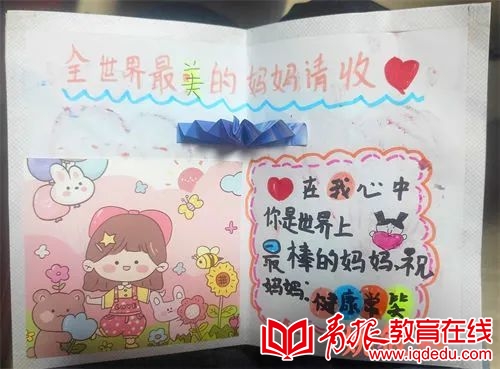 全世界最美的妈妈请收
在我心中
你是世界上
最棒的妈妈.祝
妈妈:健康常笑
青报教育在线
www.iqdedu.com